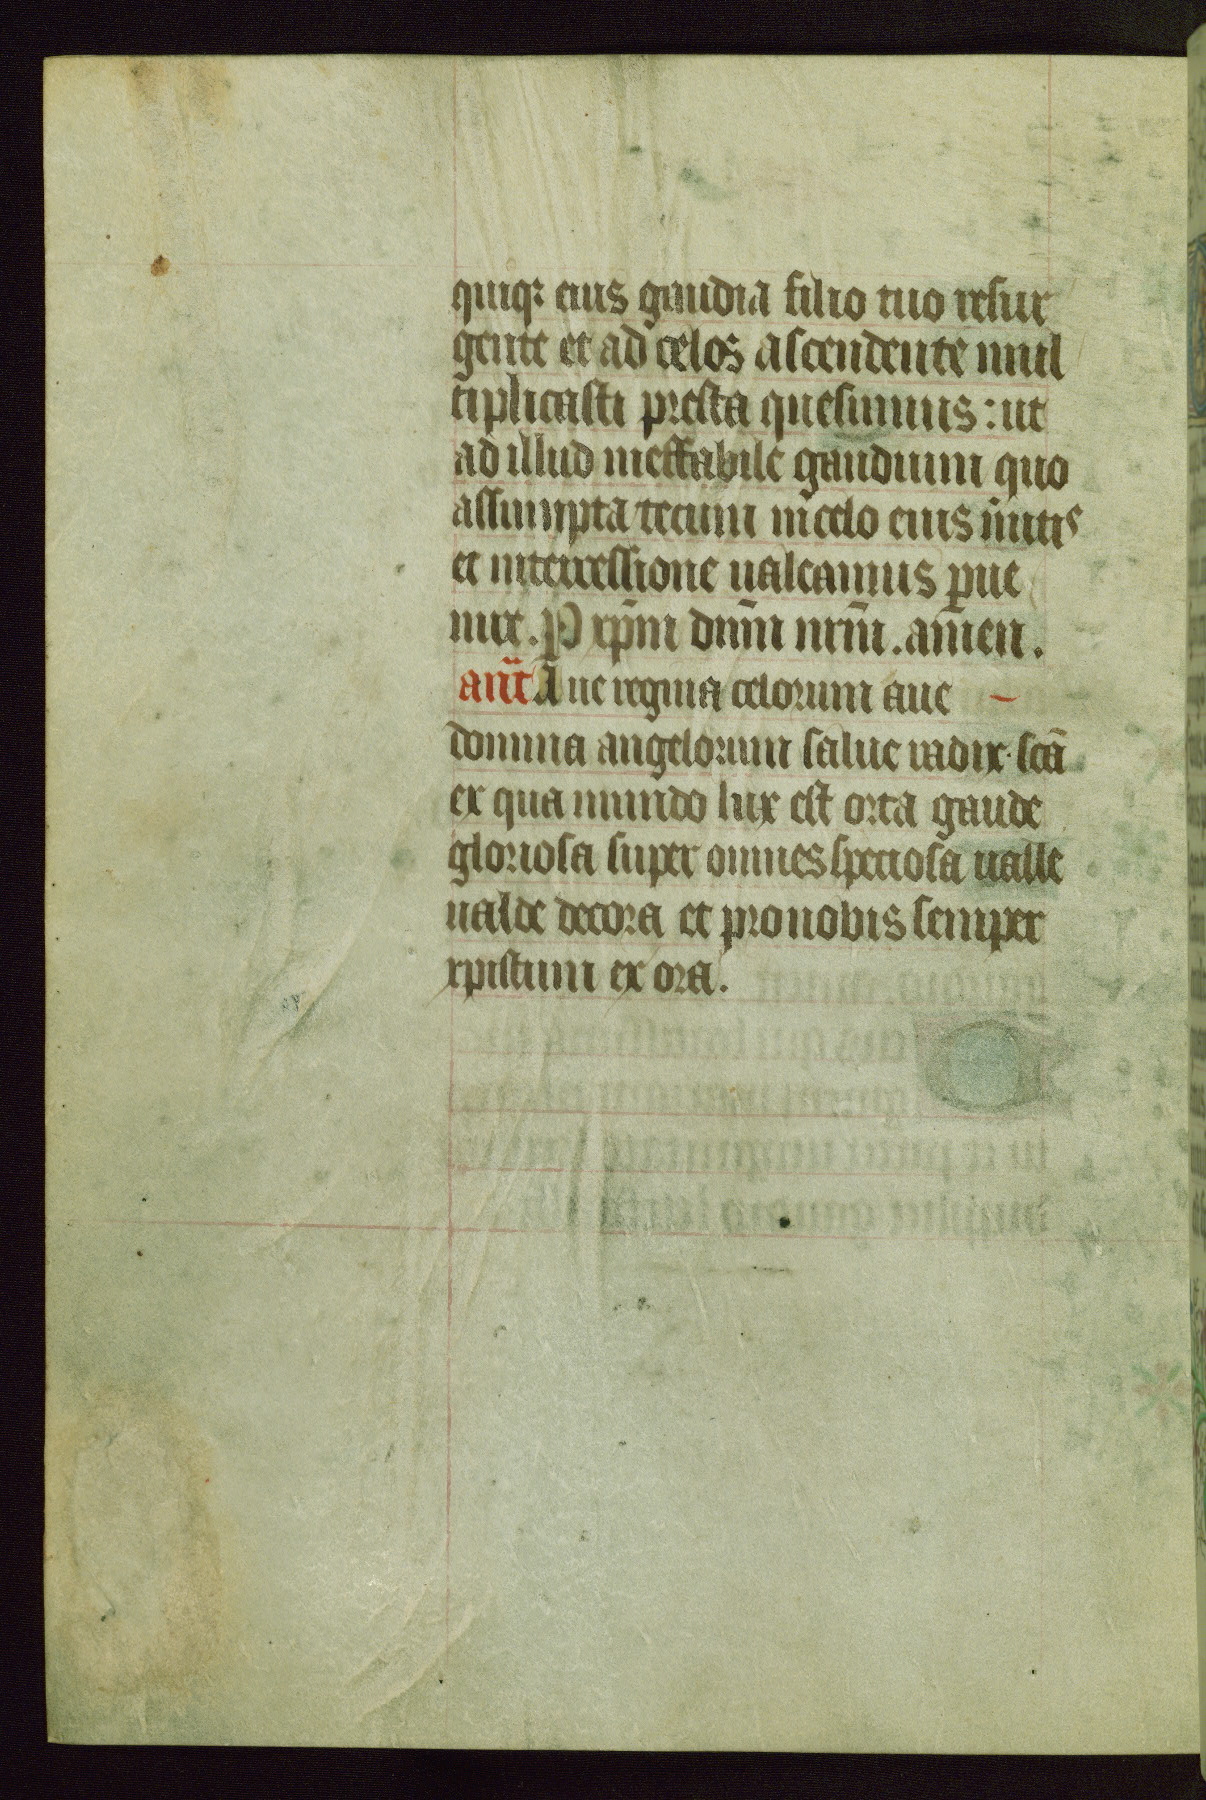 quiqꝫ eius gaudia filio tuo resur
gente et ad celos ascendente mul
tiplicasti presta quesumus : ut
ad illud ineffabile gaudium quo
assumpta tecum in celo eius m̄itis
et intercessione ualeamus ꝑue
nire . P xp̄m dnm̄ nrm̄ . am̄en .
ant̄ Aue regina celorum aue
domina angelorum salue radix · scā
ex qua mundo lux est orta gaude
gloriosa super omnes speciosa ualle
ualde decora et pro nobis semper
xpistum ex ora .